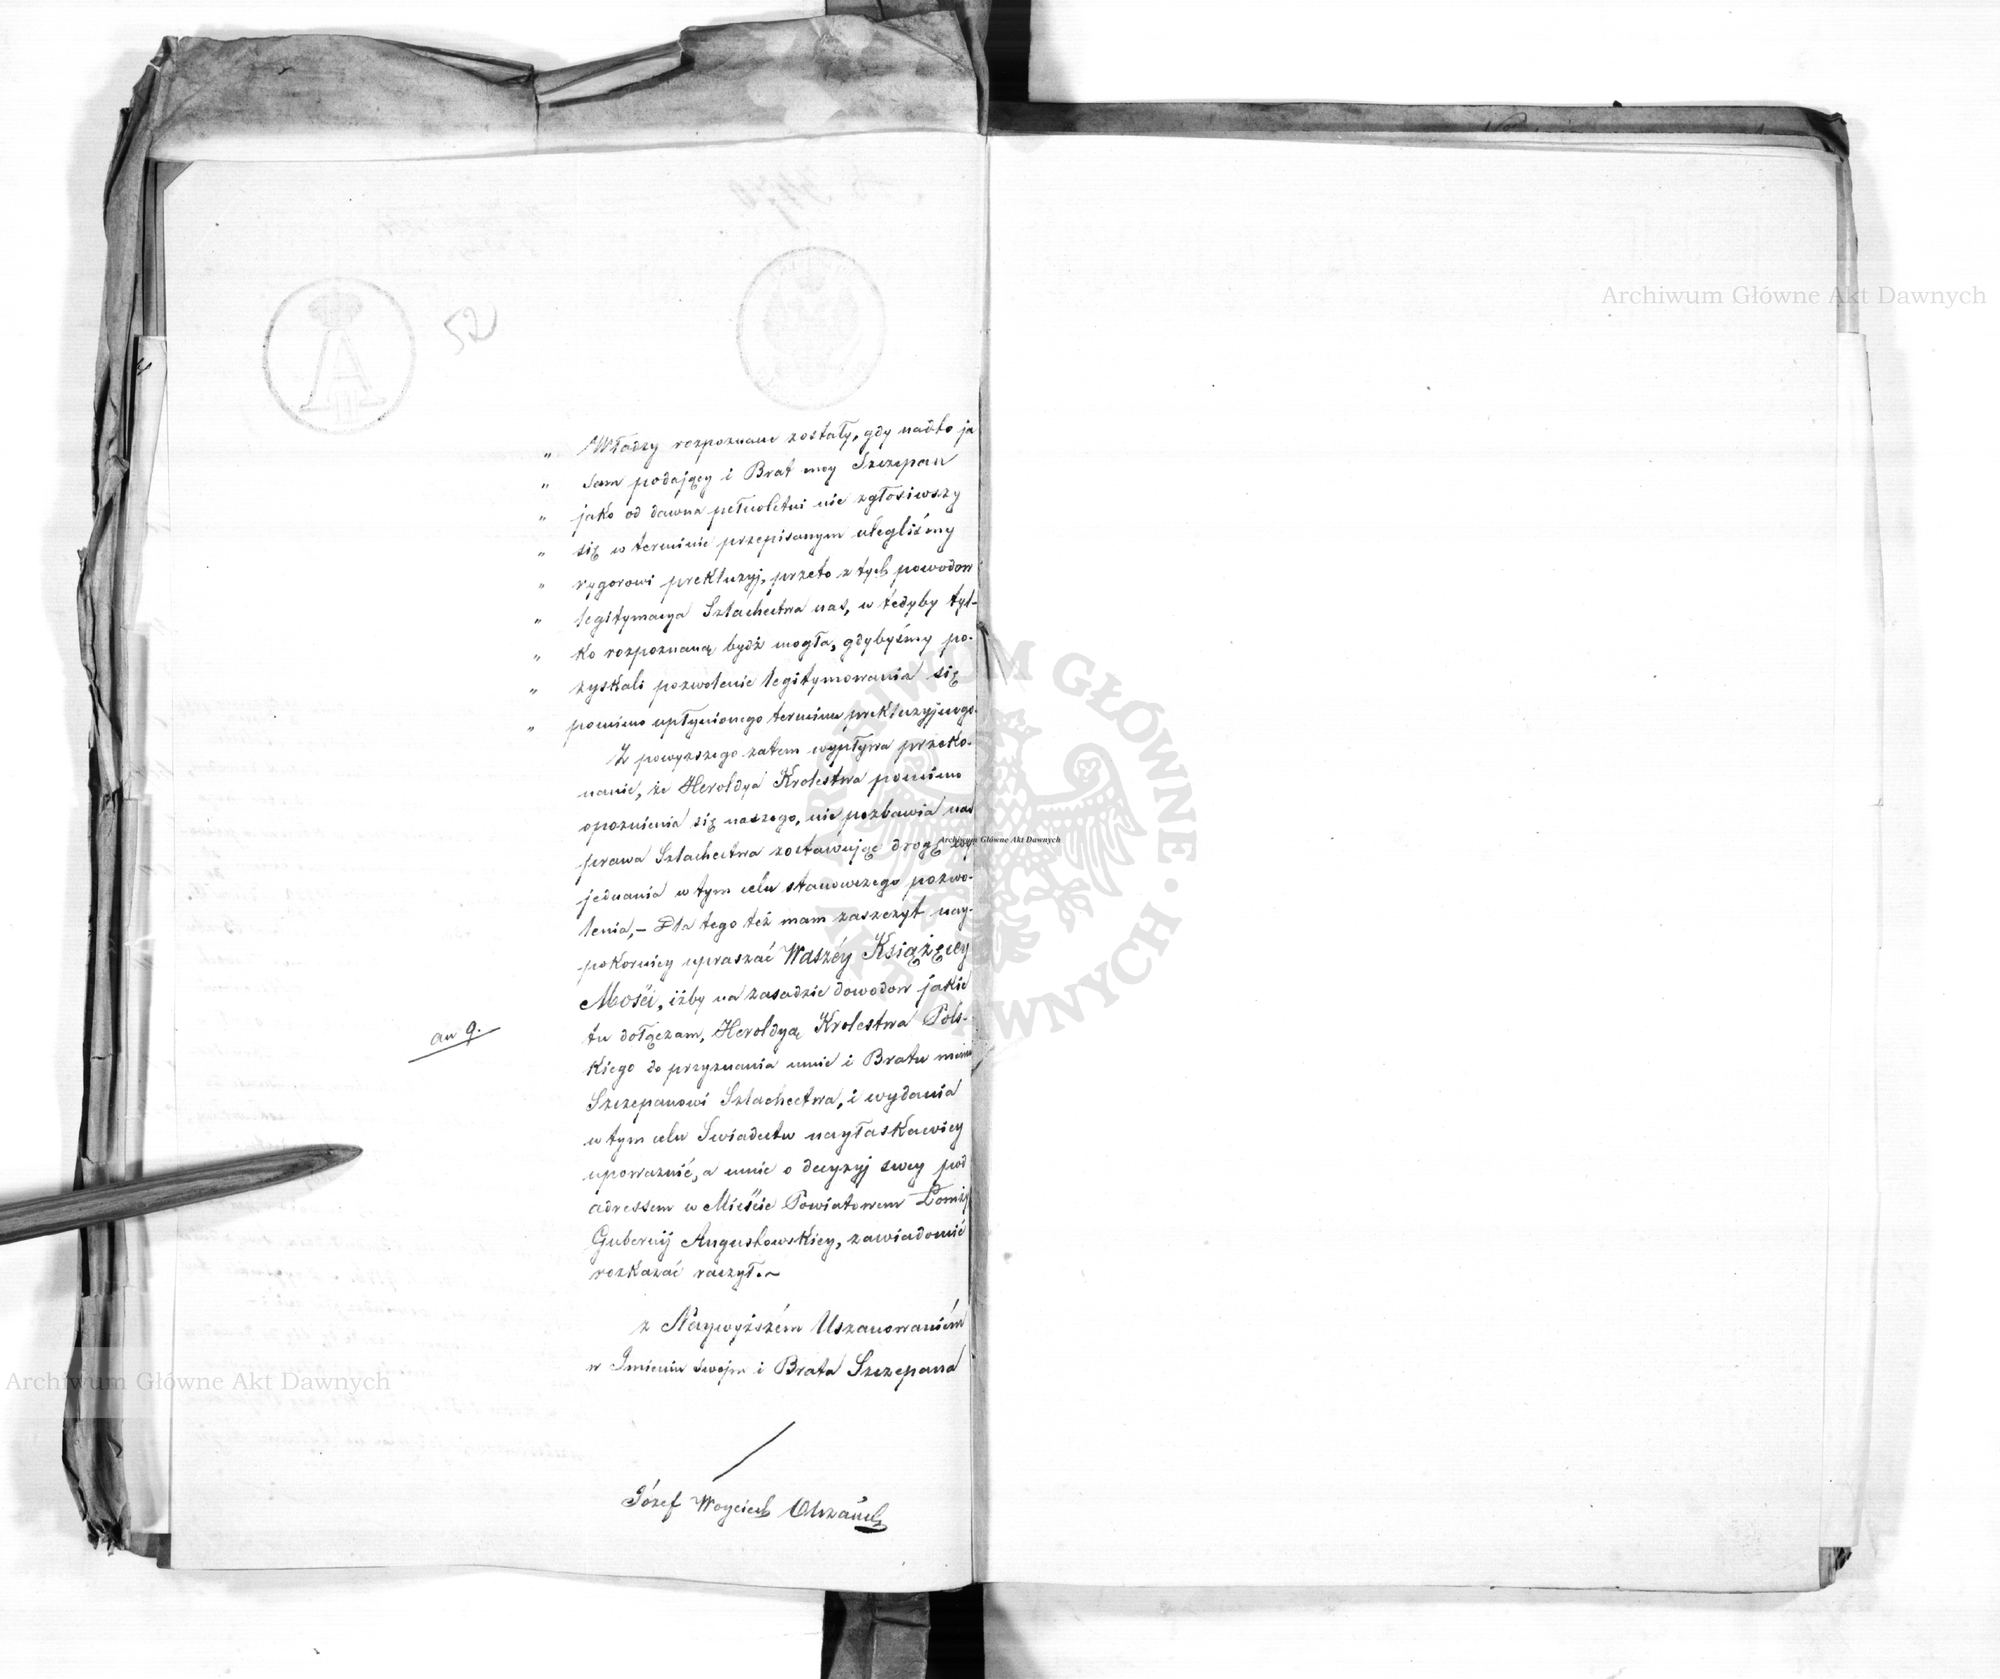 52
„ Władzy rozpoznane zostały, gdy nadto ja
„ sam podający i Brat moy Szczepan
„ jako od dawna pełnoletni nie zgłosiwszy
„ się w terminie przepisanym uleglismy
„ rygorowi prekluzyj, przeto z tych powodow
„ legitymacya Szlachectwa nas, w tedyby tyl-
„ ko rozpoznaną bydź mogła, gdybyśmy po-
„ zyskali pozwolenie legitymowania się
„ pomimo upłynionego terminu prekluzyjnego.
Z powyższego zatem wypływa przeko-
nanie, że Heroldya Krolestwa pomimo
opoznienia się naszego, nie pozbawia nas
prawa Szlachectwa zostawując drogę
jednania w tym celu stanowczego pozwo-
lenia, – Dla tego też mam zaszczyt nay-
pokorniey upraszać Waszéy Książęcey
Mości, iżby na zasadzie dowodow jakie
tu dołączam, Heroldyą Krolestwa Pols-
kiego do przyznania mnie i Bratu memu
Szczepanowi Szlachectwa, i wydania
w tym celu Swiadectw nayłaskawiey
upoważnić, a mnie o decyzyj swey pod
adressem w Mieście Powiatowem Łomży
Gubernij Augustowskiey, zawiadomić
rozkazać raczył. ~
an 9.
z Naywyższém Uszanowaniém
w Imieniu swojm i Brata Szczepana
Józef Woyciech
Archiwum Główne Akt Dawnych
Archiwum Główne Akt Dawnych
Archiwum Główne Akt Dawnych
ARCHIWUM GŁÓWNE AKT DAWNYCH